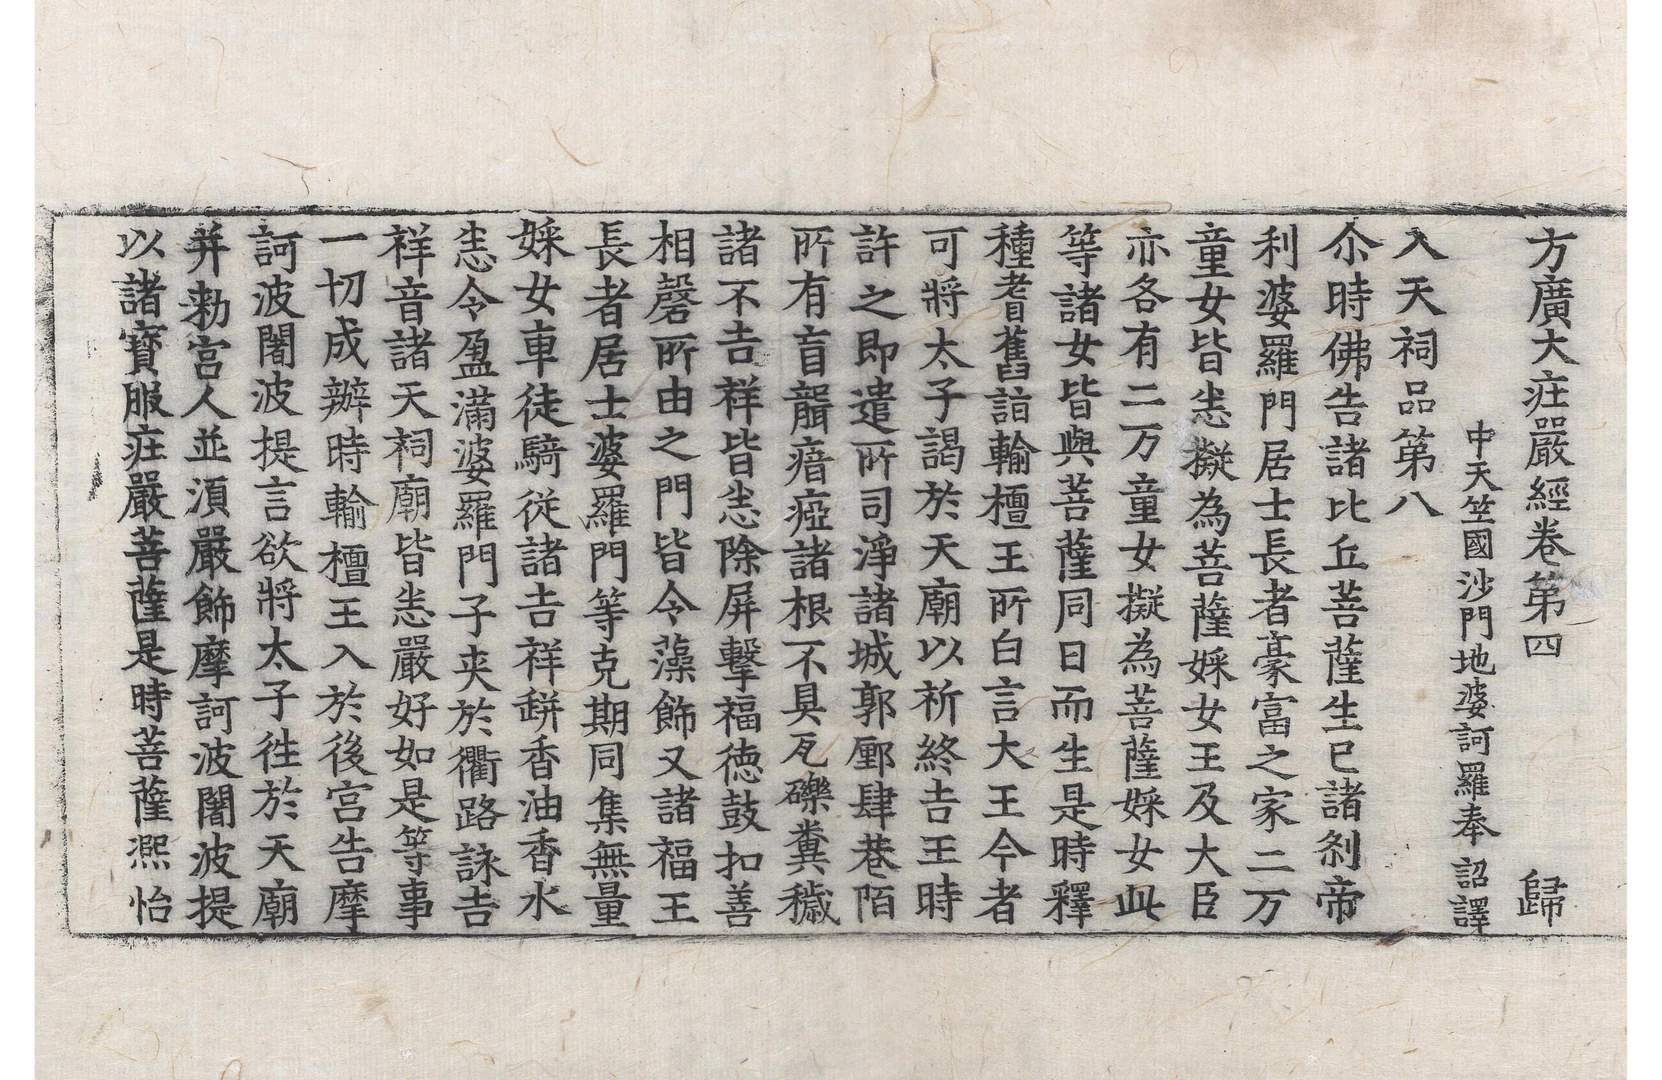 方廣大庄嚴經卷第四 歸
中天竺國沙門地婆訶羅奉 詔譯
入天祠品第八
尒時佛告諸比丘菩薩生已諸剎帝
利婆羅門居士長者豪富之家二万
童女皆悉擬為菩薩婇女王及大臣
亦各有二万童女擬為菩薩婇女此
等諸女皆與菩薩同日而生是時釋
種耆舊詣輸檀王所白言大王今者
可將太子謁於天廟以祈終吉王時
許之即遣所司淨諸城郭鄽肆巷陌
所有盲聾瘖瘂諸根不具瓦礫糞穢
諸不吉祥皆悉除屏擊福德鼓扣善
相磬所由之門皆令藻飾又諸福王
長者居士婆羅門等克期同集無量
婇女車徒騎從諸吉祥缾香油香水
悉令盈滿婆羅門子夾於衢路詠吉
祥音諸天祠廟皆悉嚴好如是等事
一切成辦時輸檀王入於後宮告摩
訶波闍波提言欲將太子徃於天廟
并勑宮人並湏嚴飾摩訶波闍波提
以諸寶服庄嚴菩薩是時菩薩熈怡